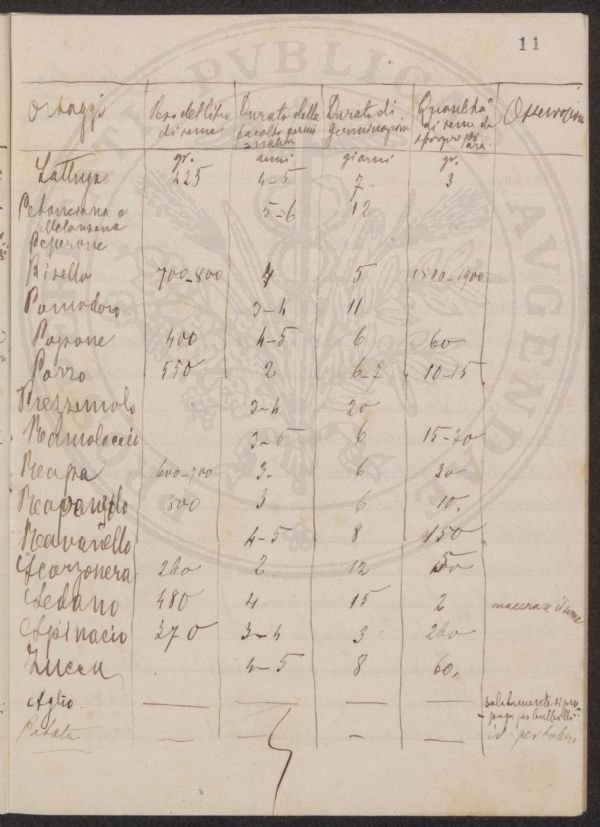 11
Ortaggi | Peso del litro di seme | Durata della facoltà germinativa | Durata di germinazione | Quantità di seme da spargere per ara | Osservazioni
gr. | anni | giorni | gr.
Lattuga 425 4-5 7 3
Petonciana o 5-6 12
Melanzana
Peperone
Pisello 700-800 4 5 1500-1900
Pomodoro 3-4 11
Popone 400 4-5 6 60
Porro 550 2 6-7 10-15
Prezzemolo 3-4 20
Ramolaccio 3-5 6 15-20
Rapa 600-700 3 6 30
500 3 6 10
Ravanello 4-5 8 150
Scorzonera 260 2 12 50
Sedano 480 4 15 2 macerare il seme
Spinacio 370 3-4 3 260
Zucca 4-5 8 60
Aglio — — — — solitamente si propaga per bulbilli
Patata — — — — id. per tuberi
PVBLICAE
AVGENDAE